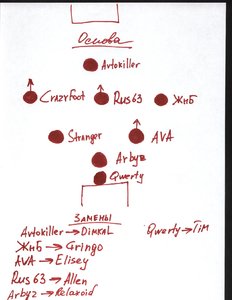 Основа
Avtokiller
CrazyFoot Rus63 ЖНБ
Stranger AVA
Arbyz
Qwerty
ЗАМЕНЫ
Avtokiller → DimKaL Qwerty → TiM
ЖНБ → Gringo
AVA → Elisey
Rus63 → Allen
Arbyz → Relaxoid